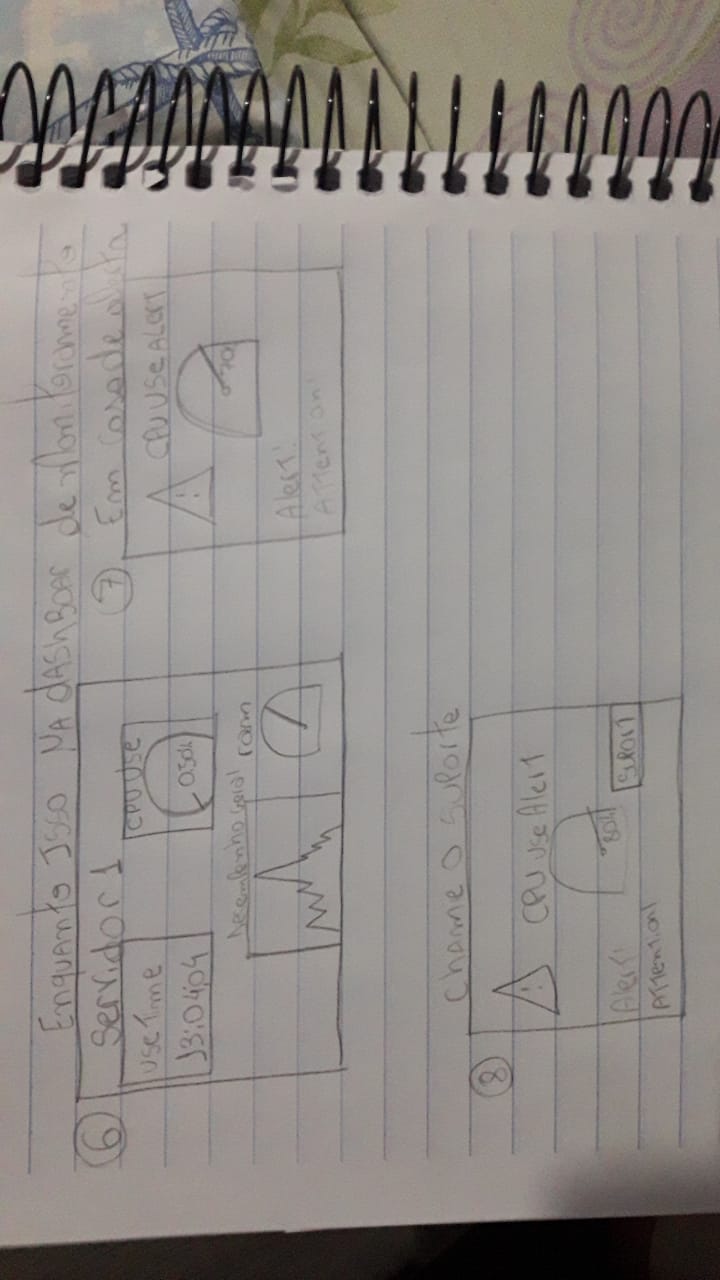 Enquanto Isso NA dASHBOAr de Monitoramento
6
Servidor 1
Use Time
13:04:04
CPU Use
0.50%
Desempenho Geral
ram
7
Em caso de alerta
CPU USE ALERT
!
70
Alert!
ATTention!
Chame O Suporte
8
!
CPU Use Alert
80%
Alert!
ATTention!
SUPORT